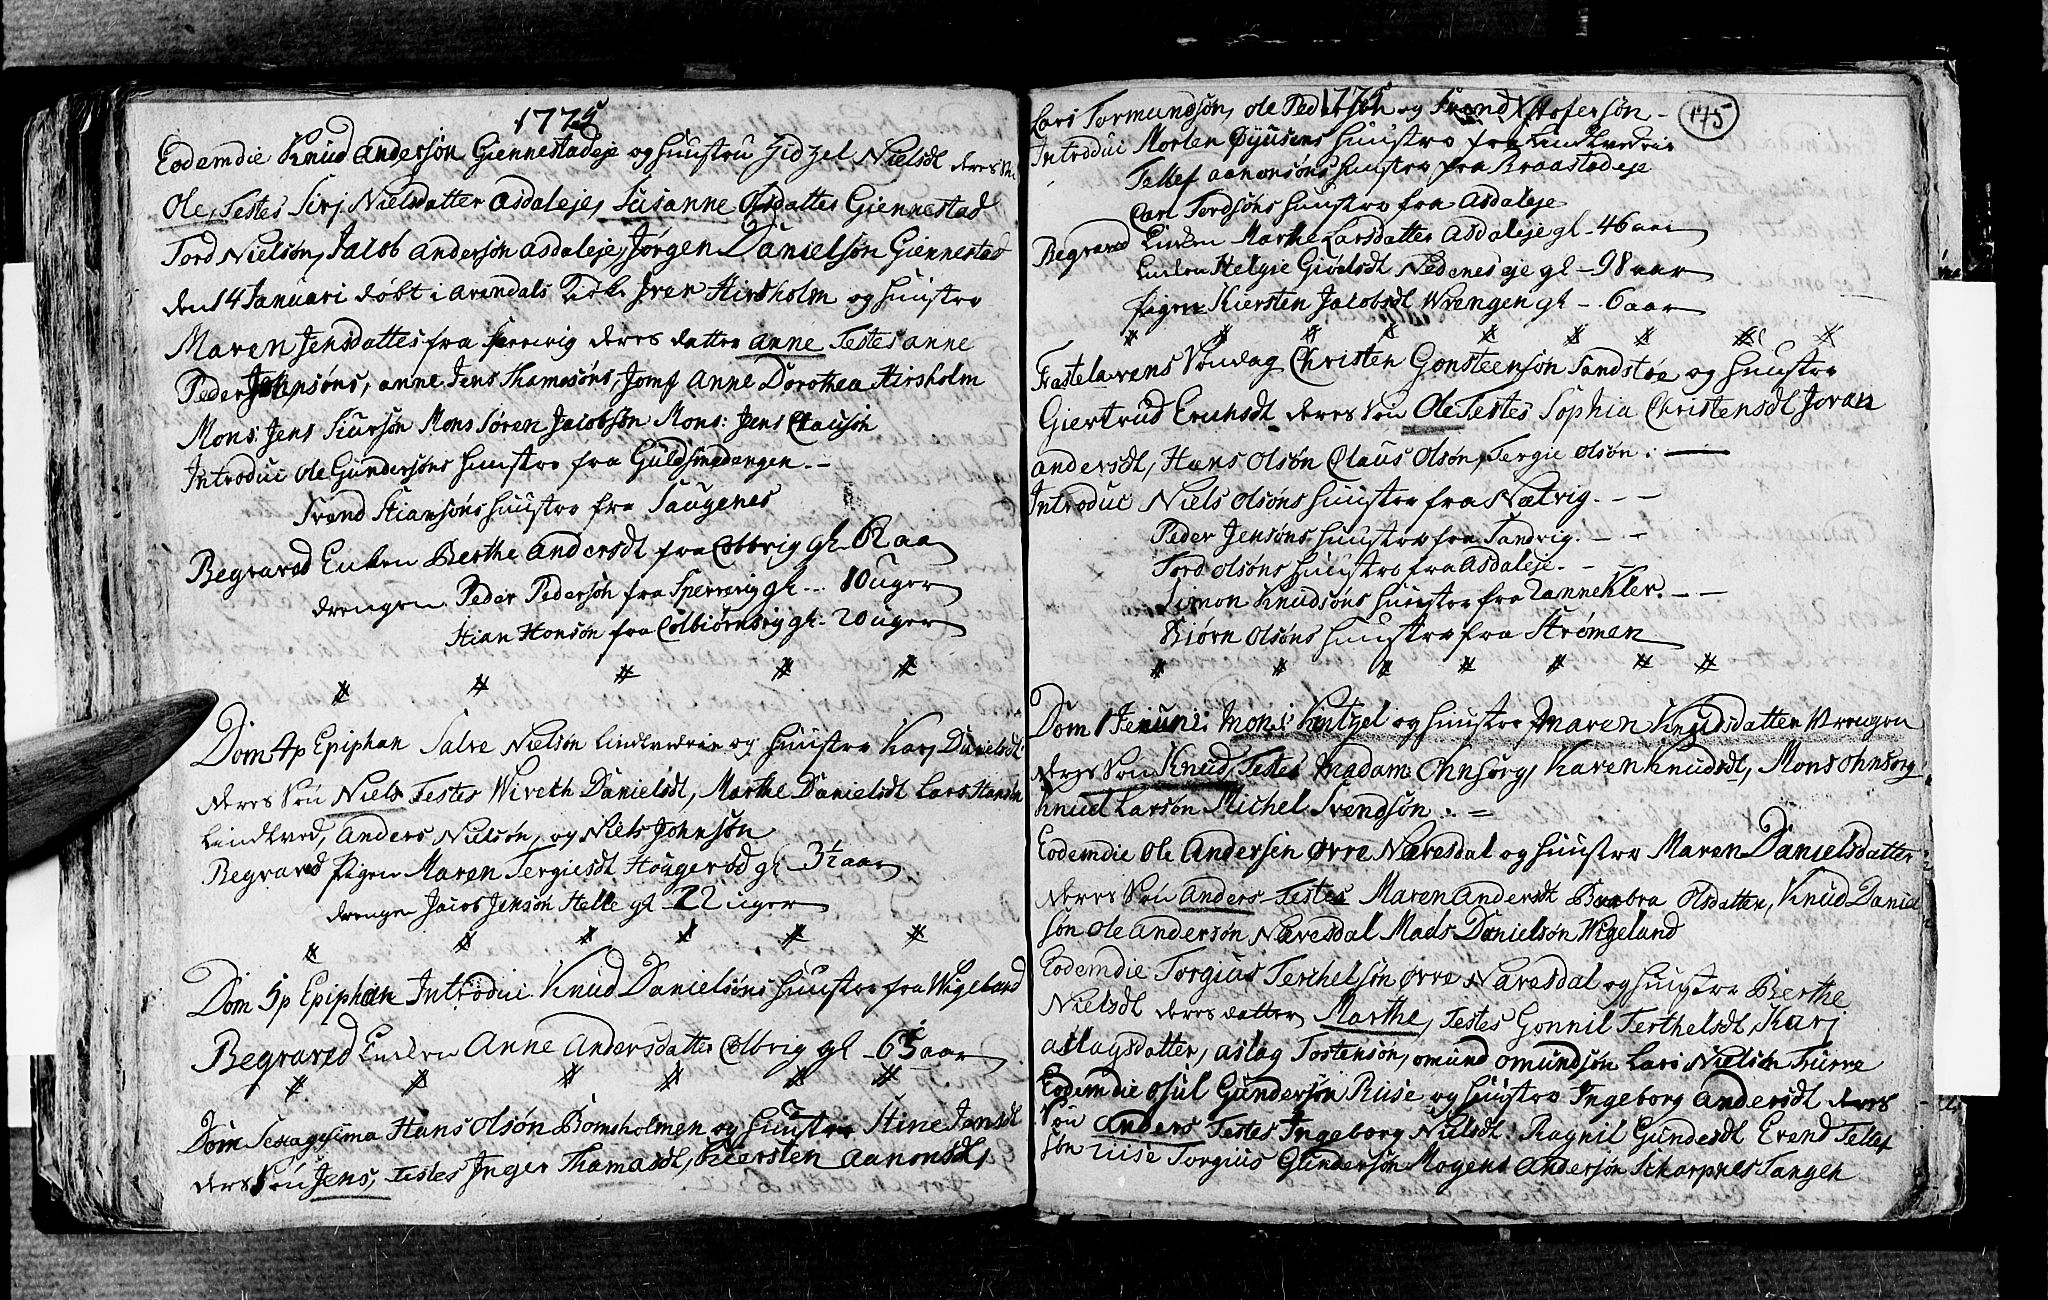 1775
Eodem die Knud Andersøn Giennestadeje og huustru Zidzel Nielsdt deres
Ole, Testes Sirj Nielsdatter Asdaleje, Susanne Olsdatter Giennestad
Tord Nielsøn, Jacob Andersøn Asdaleje, Jørgen Danielsøn Giennestad
den 14 Januari døbt i Arendals Kirke Iver Hirsholm og huustro
Maren Jensdatter fra deres datter Anne Testes Anne
Peder Johnsøns, Anne Jens Thamasøns, Jomf Anne Dorothea Hirsholm
Mons: Jens Siursøn Mons Søren Jacobsøn Mons: Jens Clausøn
Introduc Ole Gundersøns huustro fra Guldsmedengen. -
Svend Stiansøns huustro fra Saugenes
Begraved Enken Berthe Andersdt fra Colbrig gl. 62 aar
drengen Peder Pedersøn fra Sperrevig gl - 10 uger
Stian Honsøn fra Colbiørnsvig gl - 20 uger
Dom 4 p Epiphan Salve Nielsøn Lindtvedeie og huustro Karj Danielsdt
deres Søn Niels Testes Wireth Danielsdt, Marthe Danielsdt Lars Hansøn
Lindtved, Anders Nielsøn, og Niels Johnsøn
Begraved Pigen Maren Tergiesdt Høggerød gl - 3½ aar
drengen Jacob Jensøn Helle gl - 22 uger
Dom 5 p Epiphan Introduc Knud Danielsøns huustro fra Wigeland
Begraved Enken Anne Andersdatter Colbrig gl - 65 aar
Dom Sexagesima Hans Olsøn Bomsholmen og huustro Stine Jansdt
deres Søn Jens, Testes Inger Thamasdt, Kiersten Aanonsdt,
1775
175
Lars Tormundsøn, Ole Pedersøn og Svend Xstofersøn -
Introduc Morten Øyusens huustro fra Lindtvedeie
Tallef Aanonsøns huustro fra Braastadeje
Carl Tordsøns huustro fra Asdaleje
Begraved Enken Marthe Larsdatter Asdaleje gl - 46 aar
Enken Helgie Giøelsdt Nedeneseje gl - 98 aar
Pigen Kiersten Jacobsdt Wrengen gl - 6 aar
Fastelavens Søndag Christen Gonsteensøn Sandstøe og huustro
Giertrud Erichsdt deres Søn Ole Testes Sophia Christensdt Joran
Andersdt, Hans Olsøn Claus Olsøn, Tergie Olsøn.
Introduc Niels Olsøns huustro fra Nætvig. - -
Peder Jensøns huustro fra Sandvig. - -
Tord Olsøns huustro fra Asdaleje. -
Simon Knudsøns huustro fra Zannekler. - -
Biørn Olsøns huustro fra Strømen
Dom 1 Jejuni: Mons: Kintzel og huustro Maren Knudsdatter Wrengen
deres Søn Knud, Testes Madam Ohnsorg, Karen Knudsdt, Mons Ohnsorg
Knud Larsøn Michel Svendsøn. =
Eodem die Ole Andersen Øvre Næresdal og huustro Maren Danielsdatter
deres Søn Anders Testes Maren Andersdt Barbra Olsdatter, Knud Daniel
søn Ole Andersøn Næresdal Mads Danielsøn Wigeland
Eodem die Torgius Terchelsøn Øvre Næresdal og huustro Berthe
Nielsdt deres datter Marthe, Testes Gonnil Terthelsdt, Karj
Aslagsdatter, Aslag Tostensøn, Omund Omundsøn Lars Nielsøn
Eodem die Osul Gundersøn Riise og huustro Ingeborg Andersdt deres
Søn Anders Testes Ingeborg Nielsdt: Ragnil Gundersdt Erend Tellef
søn riise Torgius Gundersøn Mogens Andersøn Scharpnes Tangen